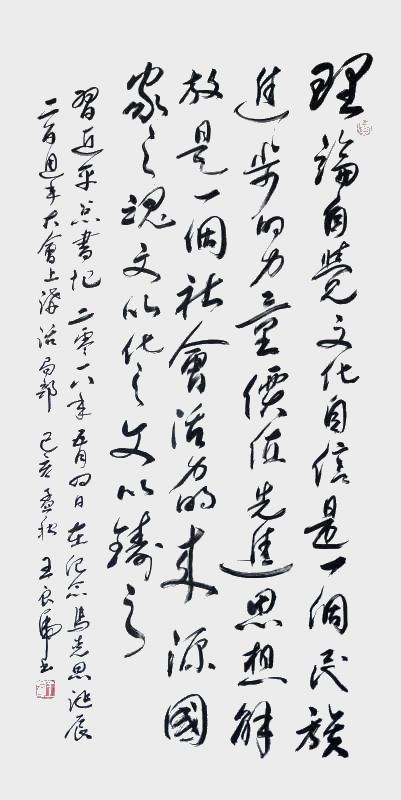 理論自覺文化自信是一個民族
進步的力量價值先進思想解
放是一個社會活力的來源國
家之魂文以化之文以鑄之
習近平总書記二零一八年五月四日在纪念馬克思诞辰
二百週年大會上講话局部 己亥孟秋 王良虎书